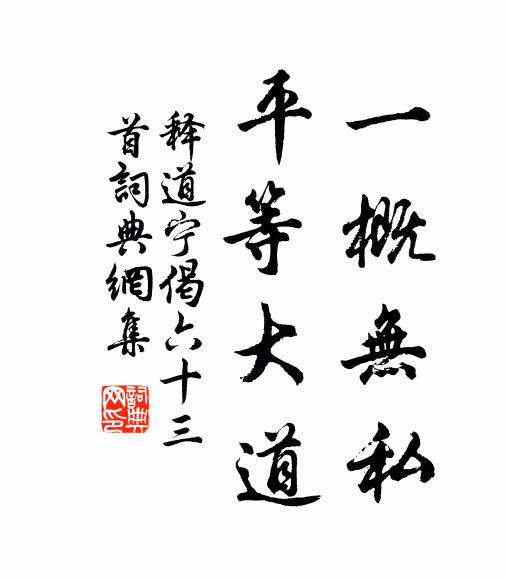 一概無私
平等大道
释道宁偈六十三
首詞典網集
詞典
网印